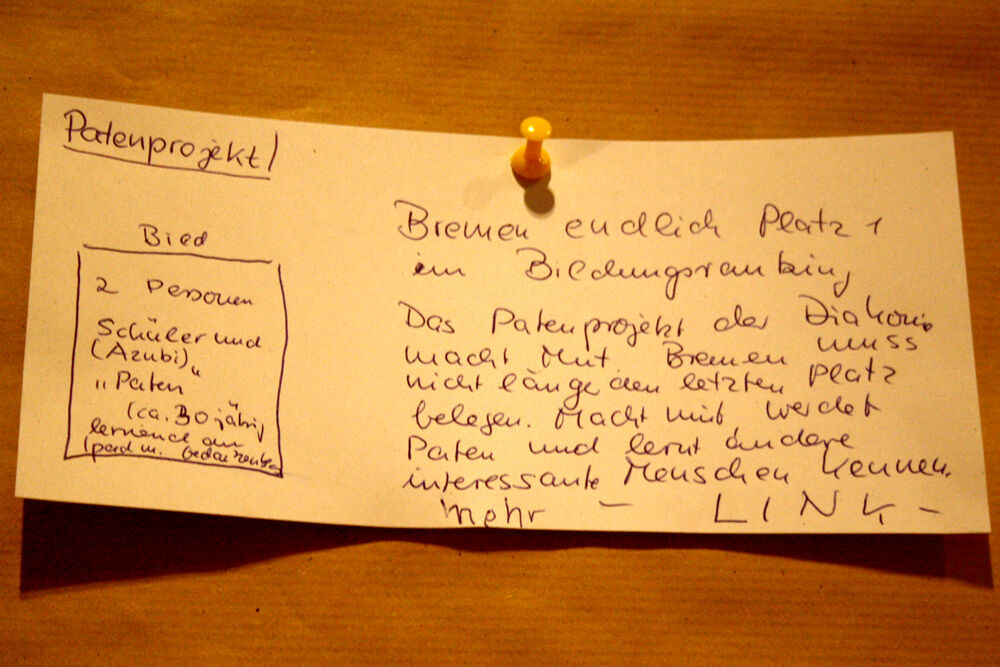 Patenprojekt
Bild
2 Personen
Schüler und
(Azubi)"
"Paten
(ca. 30 jährig
lernend am
Bremen endlich Platz 1
im Bildungsranking
Das Patenprojekt der Diakonie
macht Mut Bremen muss
nicht länge den letzten Platz
belegen. Macht mit, werdet
Paten und lernt andere
interessante Menschen kennen.
mehr - LINK -